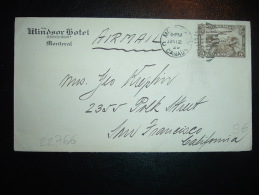 The
Windsor Hotel
Montreal
AIRMAIL
Mrs. Geo
2355 Polk Street
San Francisco
California